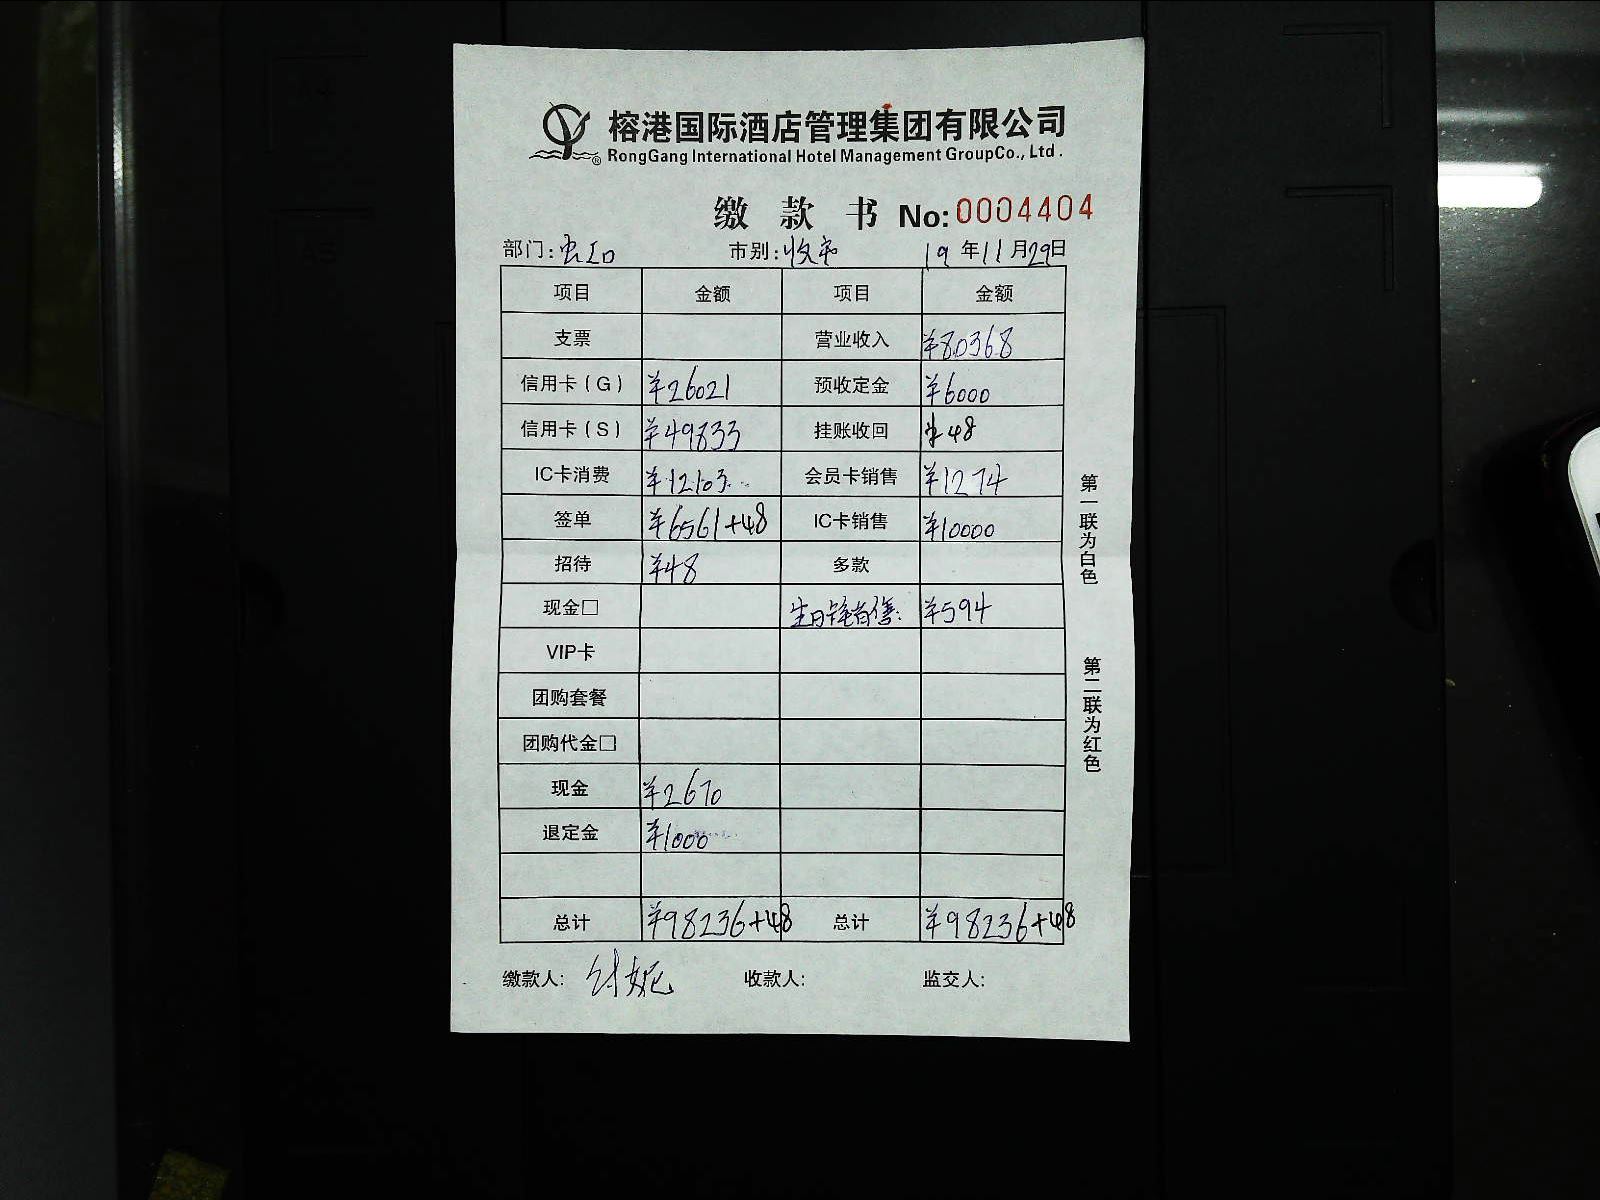 榕港国际酒店管理集团有限公司
RongGang International Hotel Management GroupCo., Ltd.
缴款书 No:0004404
部门: 市别:收市 19年11月29日
项目 金额 项目 金额
支票 营业收入 ¥80368
信用卡(G) ¥26021 预收定金 ¥6000
信用卡(S) ¥49833 挂账收回 ¥48
IC卡消费 ¥12103 会员卡销售 ¥1274
签单 ¥6561+48 IC卡销售 ¥10000
招待 ¥48 多款
现金□ 生日 ¥594
VIP卡
团购套餐
团购代金□
现金 ¥2670
退定金 ¥1000
总计 ¥98236+48 总计 ¥98236+48
缴款人: 付妮 收款人: 监交人:
第一联为白色
第二联为红色
A4
A5